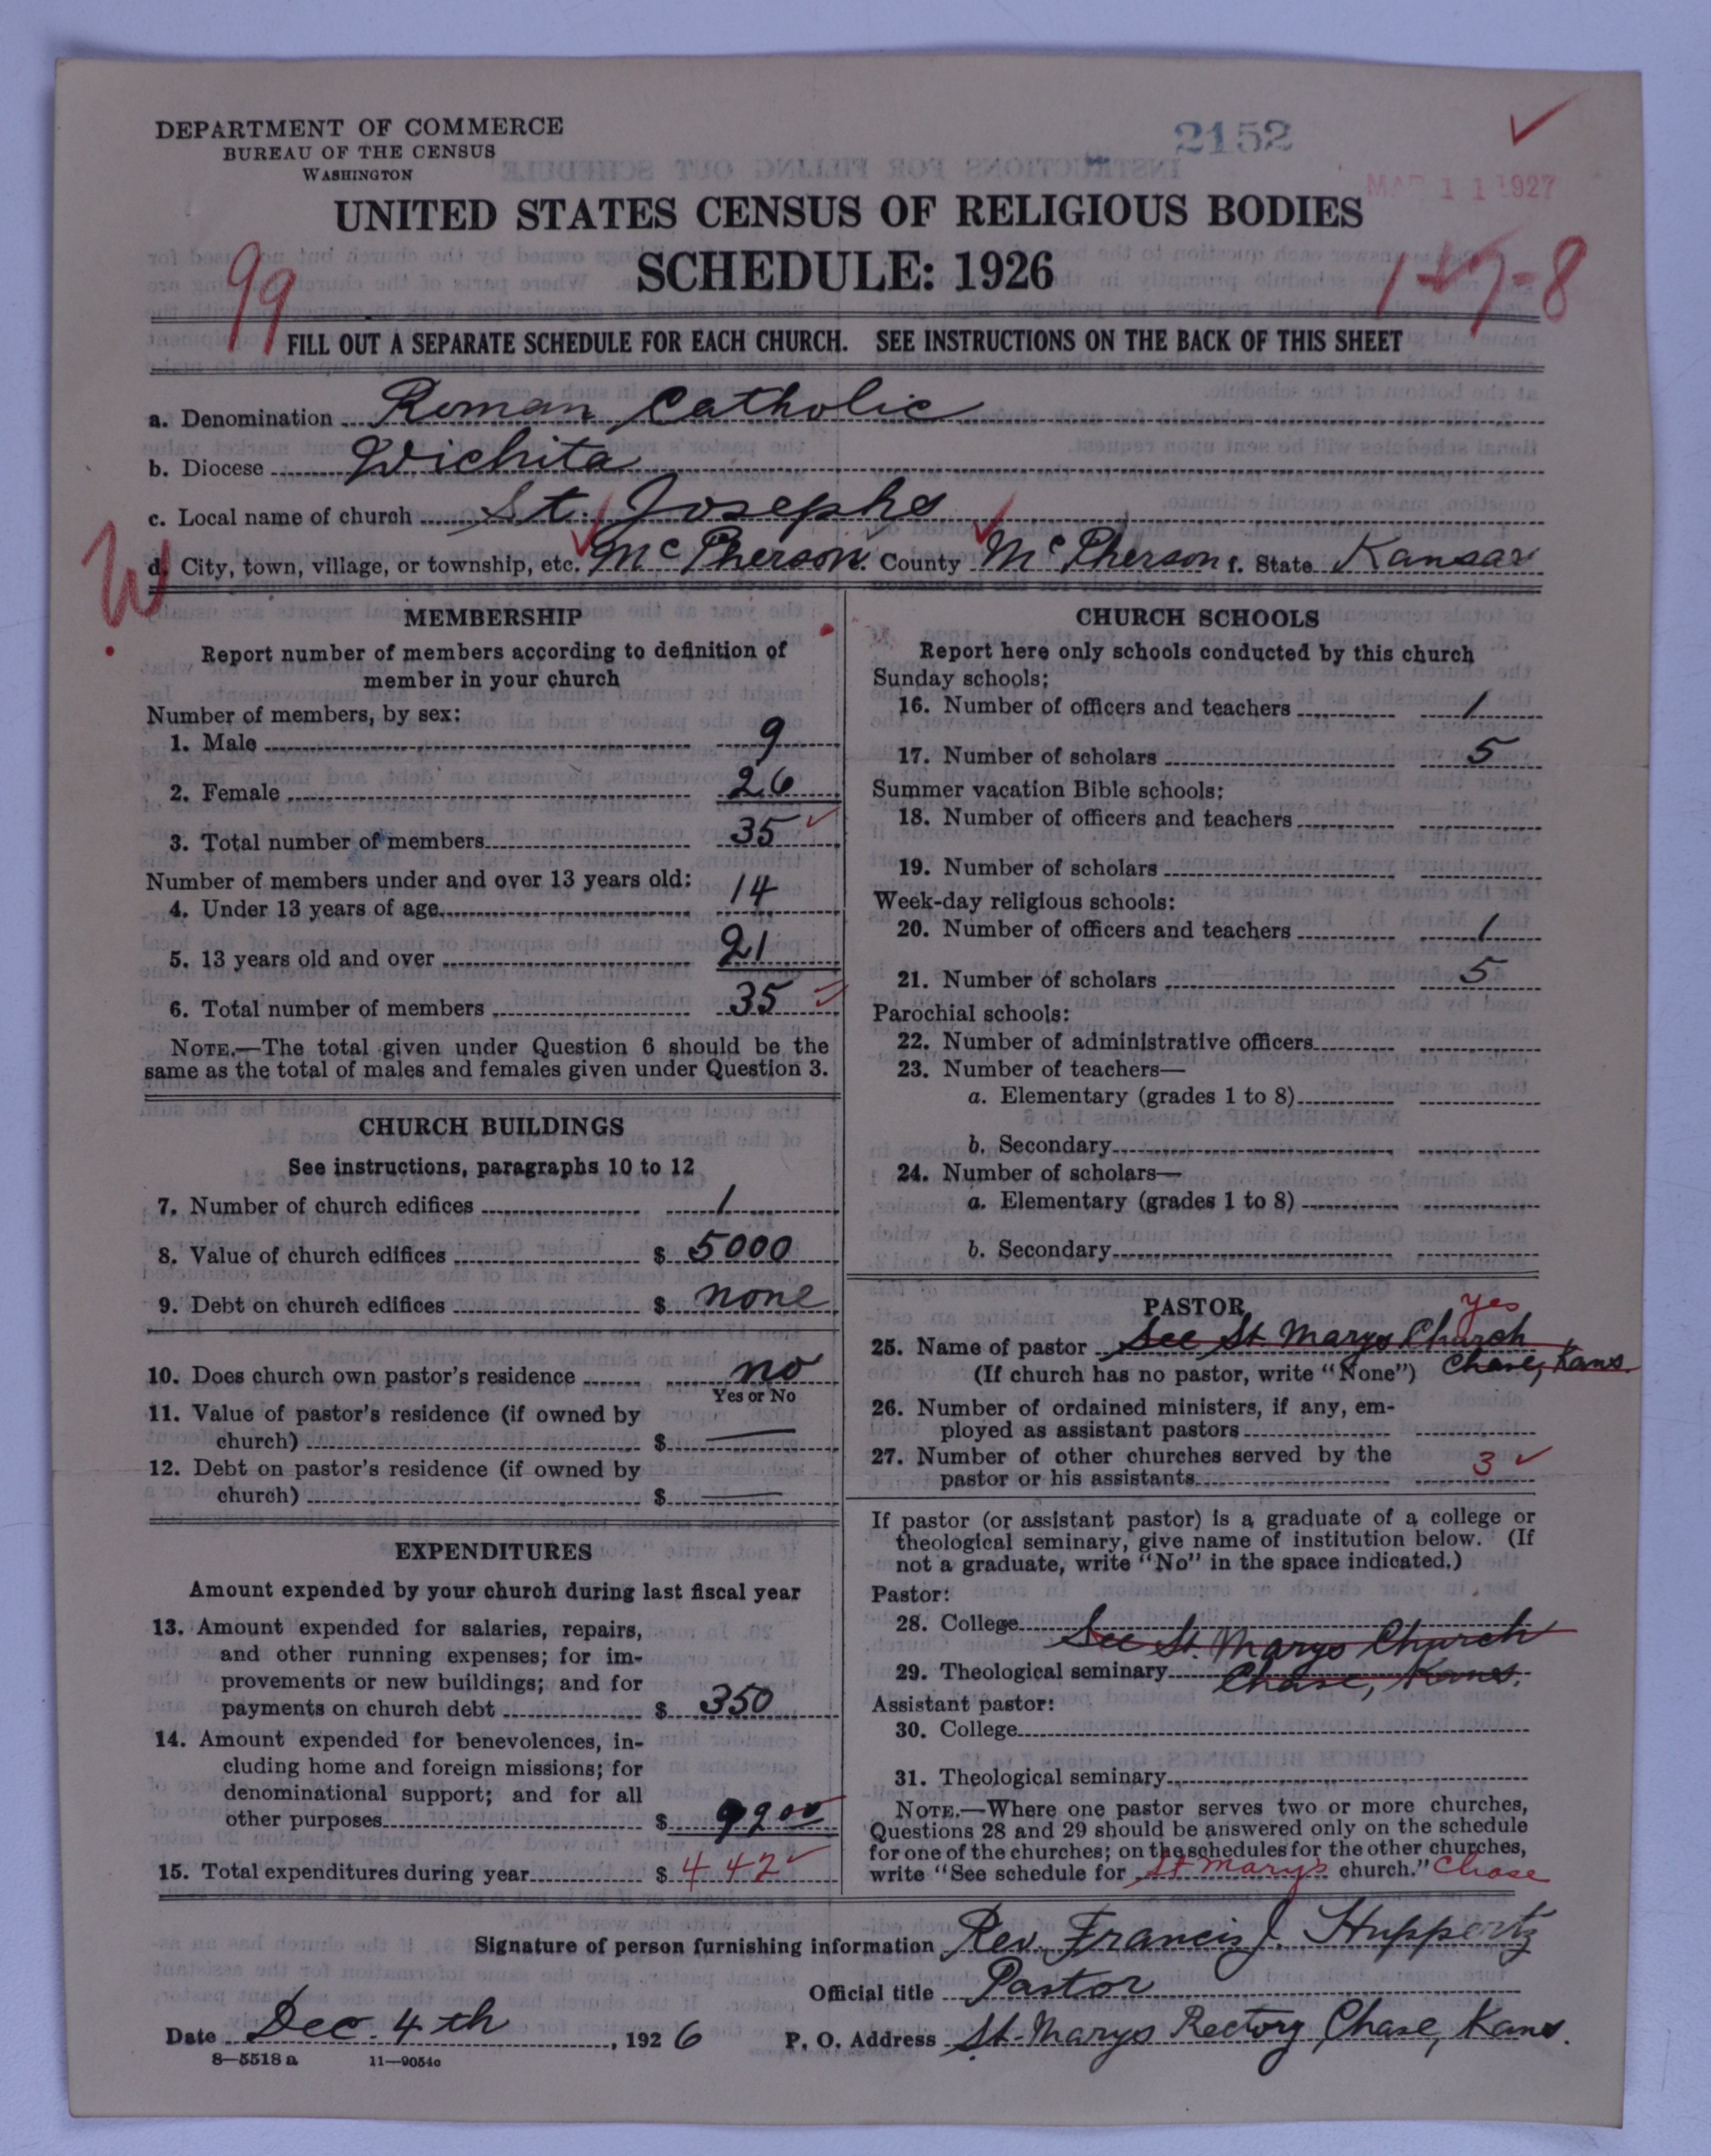 DEPARTMENT OF COMMERCE
BUREAU OF THE CENSUS
WASHINGTON
2152
MAR 11 1927
UNITED STATES CENSUS OF RELIGIOUS BODIES
SCHEDULE: 1926
99
1-27-8
FILL OUT A SEPARATE SCHEDULE FOR EACH CHURCH. SEE INSTRUCTIONS ON THE BACK OF THIS SHEET
a. Denomination Roman Catholic
b. Diocese Wichita
c. Local name of church St. Josephs
W
d. City, town, village, or township, etc. McPherson. County McPherson f. State Kansas
MEMBERSHIP
Report number of members according to definition of
member in your church
Number of members, by sex:
1. Male 9
2. Female 26
3. Total number of members 35
Number of members under and over 13 years old:
4. Under 13 years of age 14
5. 13 years old and over 21
6. Total number of members 35
NOTE.—The total given under Question 6 should be the
same as the total of males and females given under Question 3.
CHURCH BUILDINGS
See instructions, paragraphs 10 to 12
7. Number of church edifices 1
8. Value of church edifices $ 5000
9. Debt on church edifices $ none
10. Does church own pastor's residence no
Yes or No
11. Value of pastor's residence (if owned by
church) $ —
12. Debt on pastor's residence (if owned by
church) $ —
EXPENDITURES
Amount expended by your church during last fiscal year
13. Amount expended for salaries, repairs,
and other running expenses; for im-
provements or new buildings; and for
payments on church debt $ 350
14. Amount expended for benevolences, in-
cluding home and foreign missions; for
denominational support; and for all
other purposes $ 92 00
15. Total expenditures during year $ 442
CHURCH SCHOOLS
Report here only schools conducted by this church
Sunday schools:
16. Number of officers and teachers 1
17. Number of scholars 5
Summer vacation Bible schools:
18. Number of officers and teachers
19. Number of scholars
Week-day religious schools:
20. Number of officers and teachers 1
21. Number of scholars 5
Parochial schools:
22. Number of administrative officers
23. Number of teachers—
a. Elementary (grades 1 to 8)
b. Secondary
24. Number of scholars—
a. Elementary (grades 1 to 8)
b. Secondary
PASTOR
yes
25. Name of pastor See St Marys Church
(If church has no pastor, write "None") Chase, Kans
26. Number of ordained ministers, if any, em-
ployed as assistant pastors
27. Number of other churches served by the
pastor or his assistants 3
If pastor (or assistant pastor) is a graduate of a college or
theological seminary, give name of institution below. (If
not a graduate, write "No" in the space indicated.)
Pastor:
28. College See St. Marys Church
29. Theological seminary Chase, Kans.
Assistant pastor:
30. College
31. Theological seminary
NOTE.—Where one pastor serves two or more churches,
Questions 28 and 29 should be answered only on the schedule
for one of the churches; on the schedules for the other churches,
write "See schedule for St Mary's church." Chase
Signature of person furnishing information Rev. Francis J. Huppertz
Official title Pastor
Date Dec. 4th, 1926 P. O. Address St. Marys Rectory, Chase, Kans.
8—5518a 11—9054c